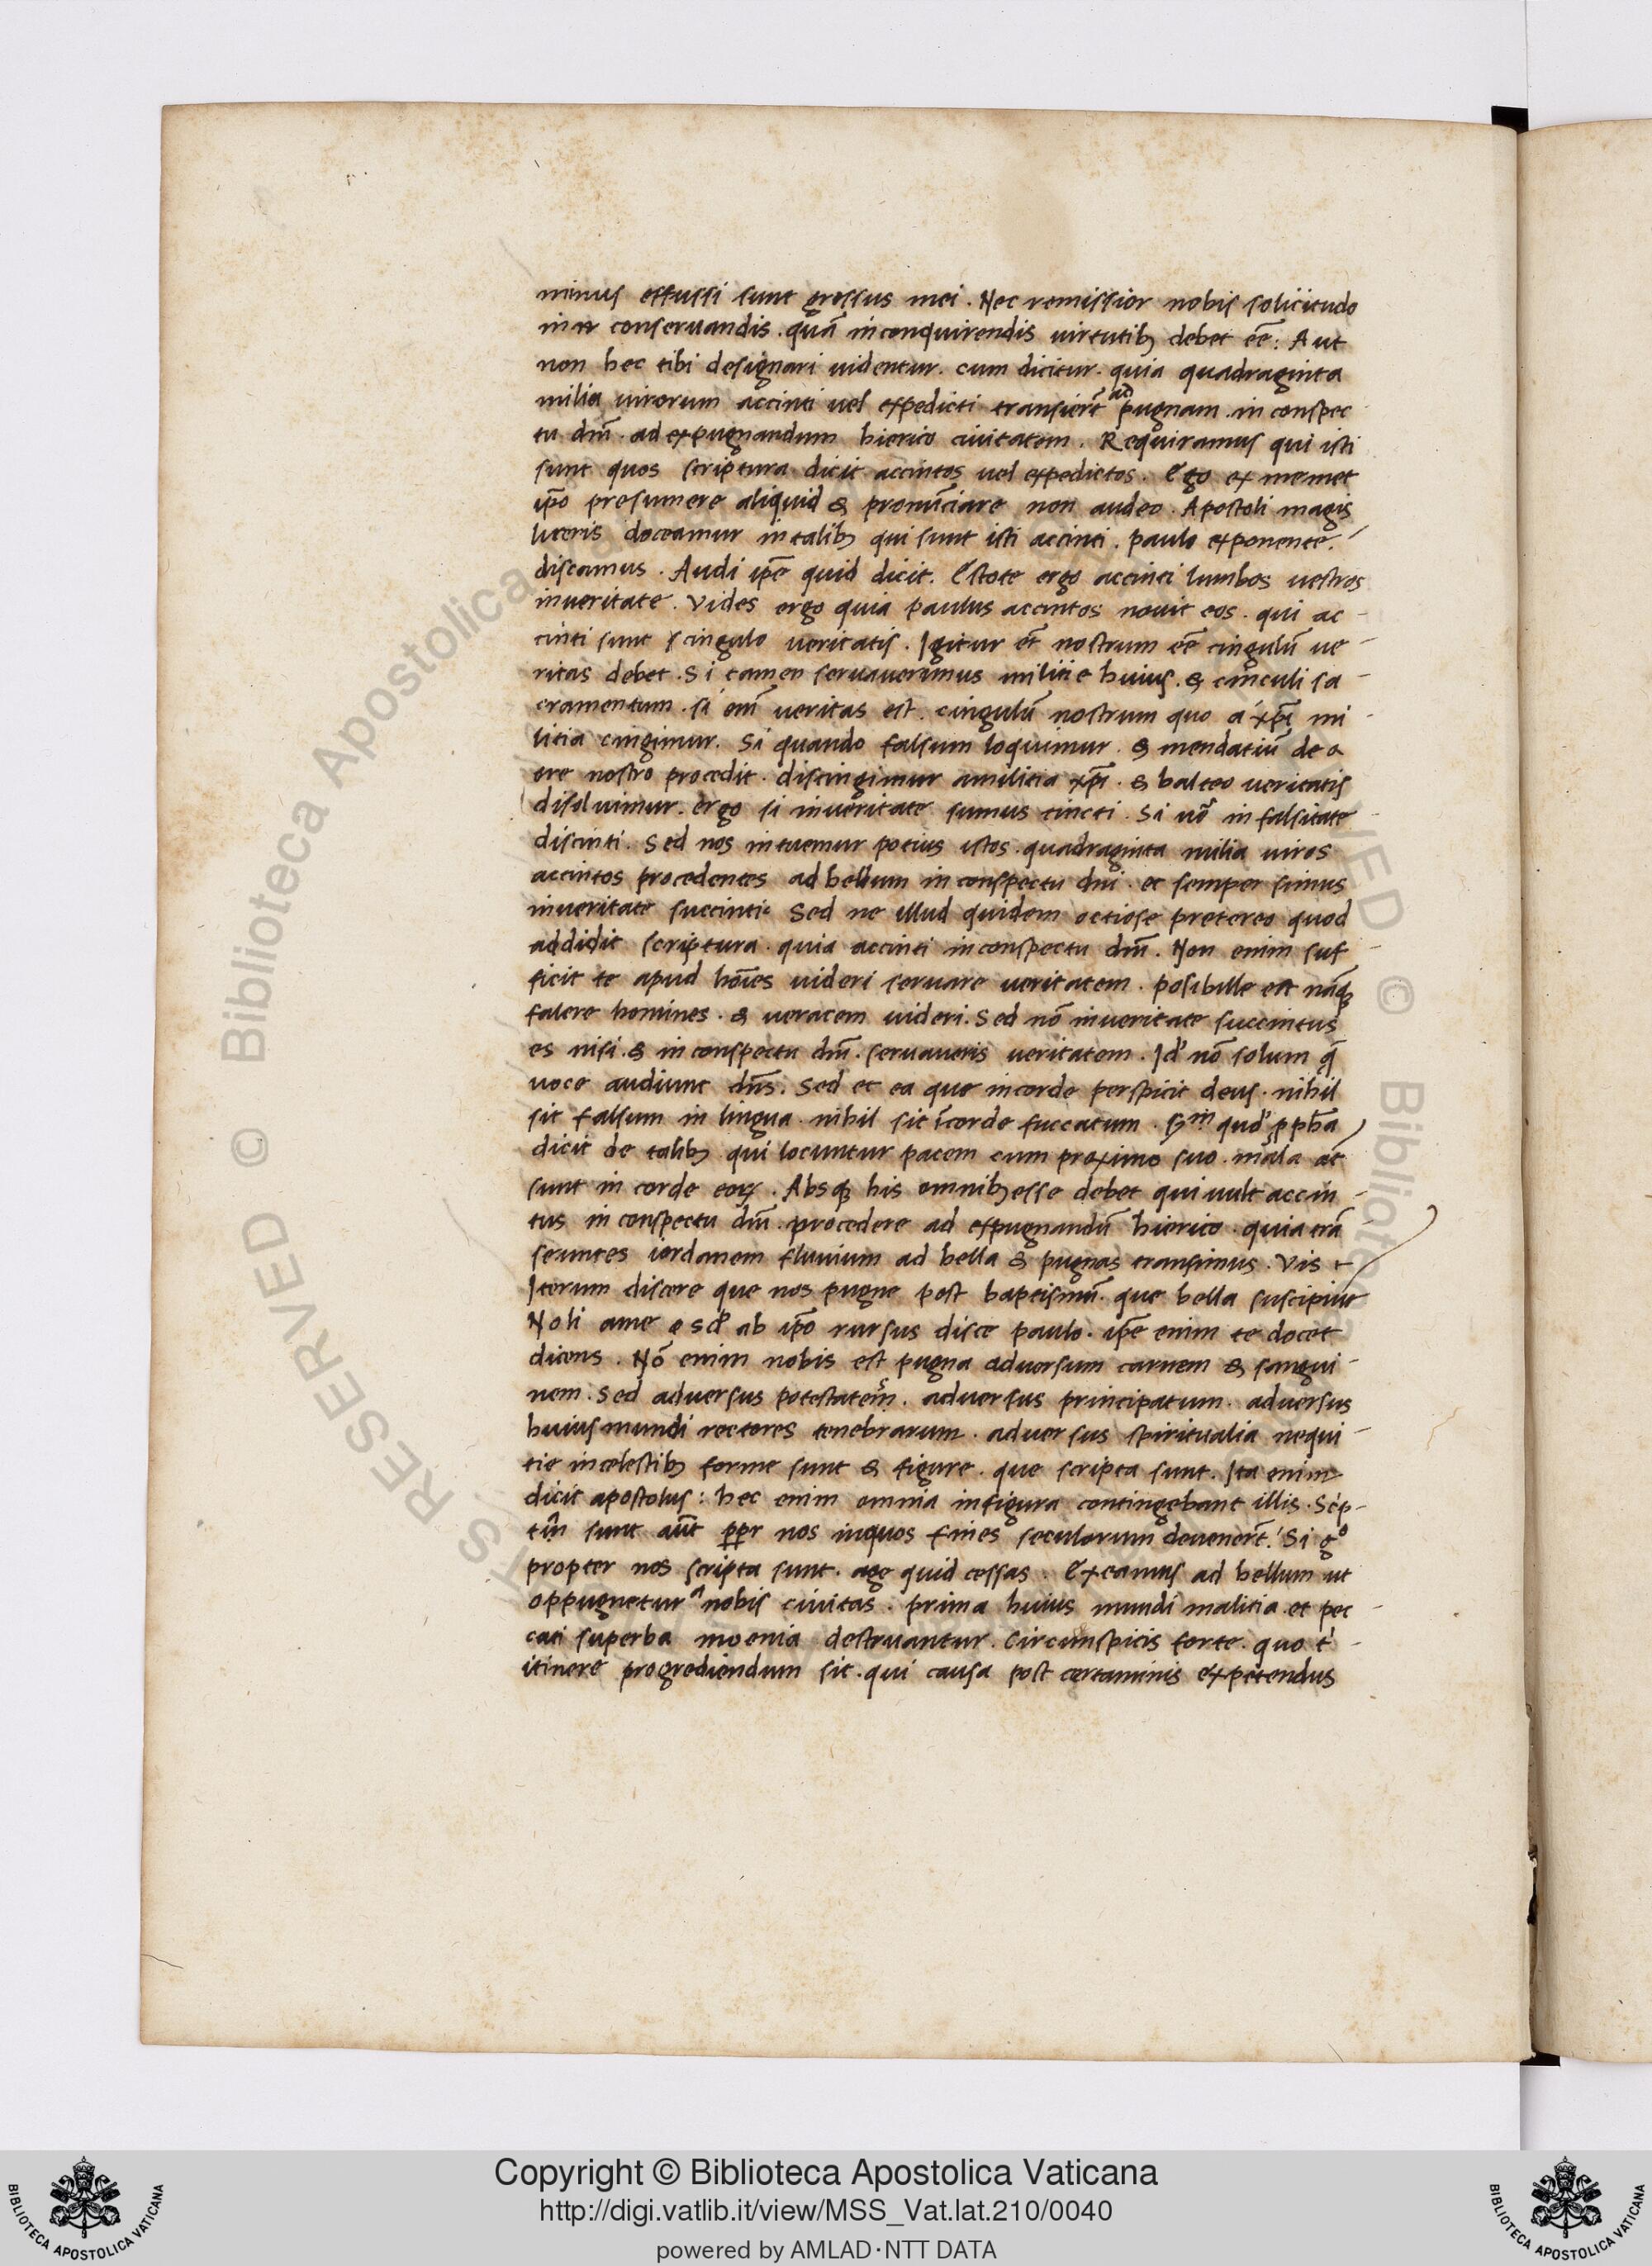 minus effussi sunt gressus mei. Nec remissior nobis solicitudo
in conseruandis. quã inconquirendis uirtutibꝫ debet eẽ: Aut
non hec tibi designari uidentur. cum dicitur. quia quadraginta
milia uirorum accinti uel expedicti transiert̃ ad pugnam. in conspec
tu dnĩ. ad expugnandum hierico ciuitatem. Requiramus qui isti
sunt quos scriptura dicit accintos uel expedictos. Ego ex memet
ip̃o presumere aliquid & pronunc̃iare non audeo. Apostoli magis
literis doceamur intalibꝫ qui sunt isti accinti. paulo exponente.
discamus. Audi ip̃e quid dicit. Estote ergo accinti lumbos uestros
inueritate. Vides ergo quia paulus accintos nouit eos. qui ac-
cinti sunt cingulo ueritatis. Igitur et̃ nostrum eẽ cingulũ ue-
ritas debet. Si tamen seruauerimus militie huius. & cinculi sa-
cramentum. si em̃ ueritas est. cingulũ nostrum quo a xp̃i mi-
litia cingimur. Si quando falsum loquimur. & mendatiũ de o
ore nostro procedit. discingimur amilitia xp̃i. & balteo ueritatis
disoluimur. ergo si inueritate sumus cincti. Si uõ in falsitate
discinti. Sed nos intuemur potius istos. quadraginta milia uiros
accintos procedentes ad bellum in conspectu dnĩ. et semper simus
inueritate succinti. Sed ne illud quidem octiose pretereo quod
addidit scriptura. quia accinti inconspectu dnĩ. Non enim suf-
ficit te apud hoĩes uideri seruare ueritatem. posibille est nãqꝫ
falere homines. & ueracem uideri. Sed nõ inueritate succintus
es nisi. & in conspectu dnĩ. seruaueris ueritatem. Id' nõ solum q̃
uoce audiunt dñs. Sed et ea que incorde perspicit deus. nihil
sit falsum in lingua. nihil sit ĩcorde fuccatum. qud' ꝓpħa
dicit de talibꝫ qui locuntur pacem cum proximo suo. mala at̃
sunt in corde eoꝝ. Absqꝫ his omnibꝫ esse debet qui uult accin-
tus in conspectu dnĩ. procedere ad expugnandũ hierico. quia trã
seuntes iordanem fluuium ad bella & pugnas transimus. Vis
Iterum discere que nos pugne post baptismũ. que bella suscipiũt
Noli ame sd' ab ip̃o rursus disce paulo. ip̃e enim te docet
dicens. Nõ enim nobis est pugna aduersum carnem & sangui-
nem. Sed aduersus potestatem̃. aduersus principatum. aduersus
huiusmundi rectores tenebrarum. aduersus spiritualia nequi-
tie incelestibꝫ forme sunt & figure. que scripta sunt. Ita enim
dicit apostolus: hec enim omnia infigura contingebant illis. Scip-
sunt aut̃ nos inquos fines seculorum deuenert̃. Si gº
propter nos scripta sunt. age quid cessas. Exeamus ad bellum ut
oppugnetur a nobis ciuitas. prima huius mundi malitia et pec-
cati superba moenia destruantur. Circumspicis forte. quo t'-
itinere progrediendum sit. qui causa post certaminis expetendus
Copyright © Biblioteca Apostolica Vaticana
http://digi.vatlib.it/view/MSS_Vat.lat.210/0040
powered by AMLAD·NTT DATA